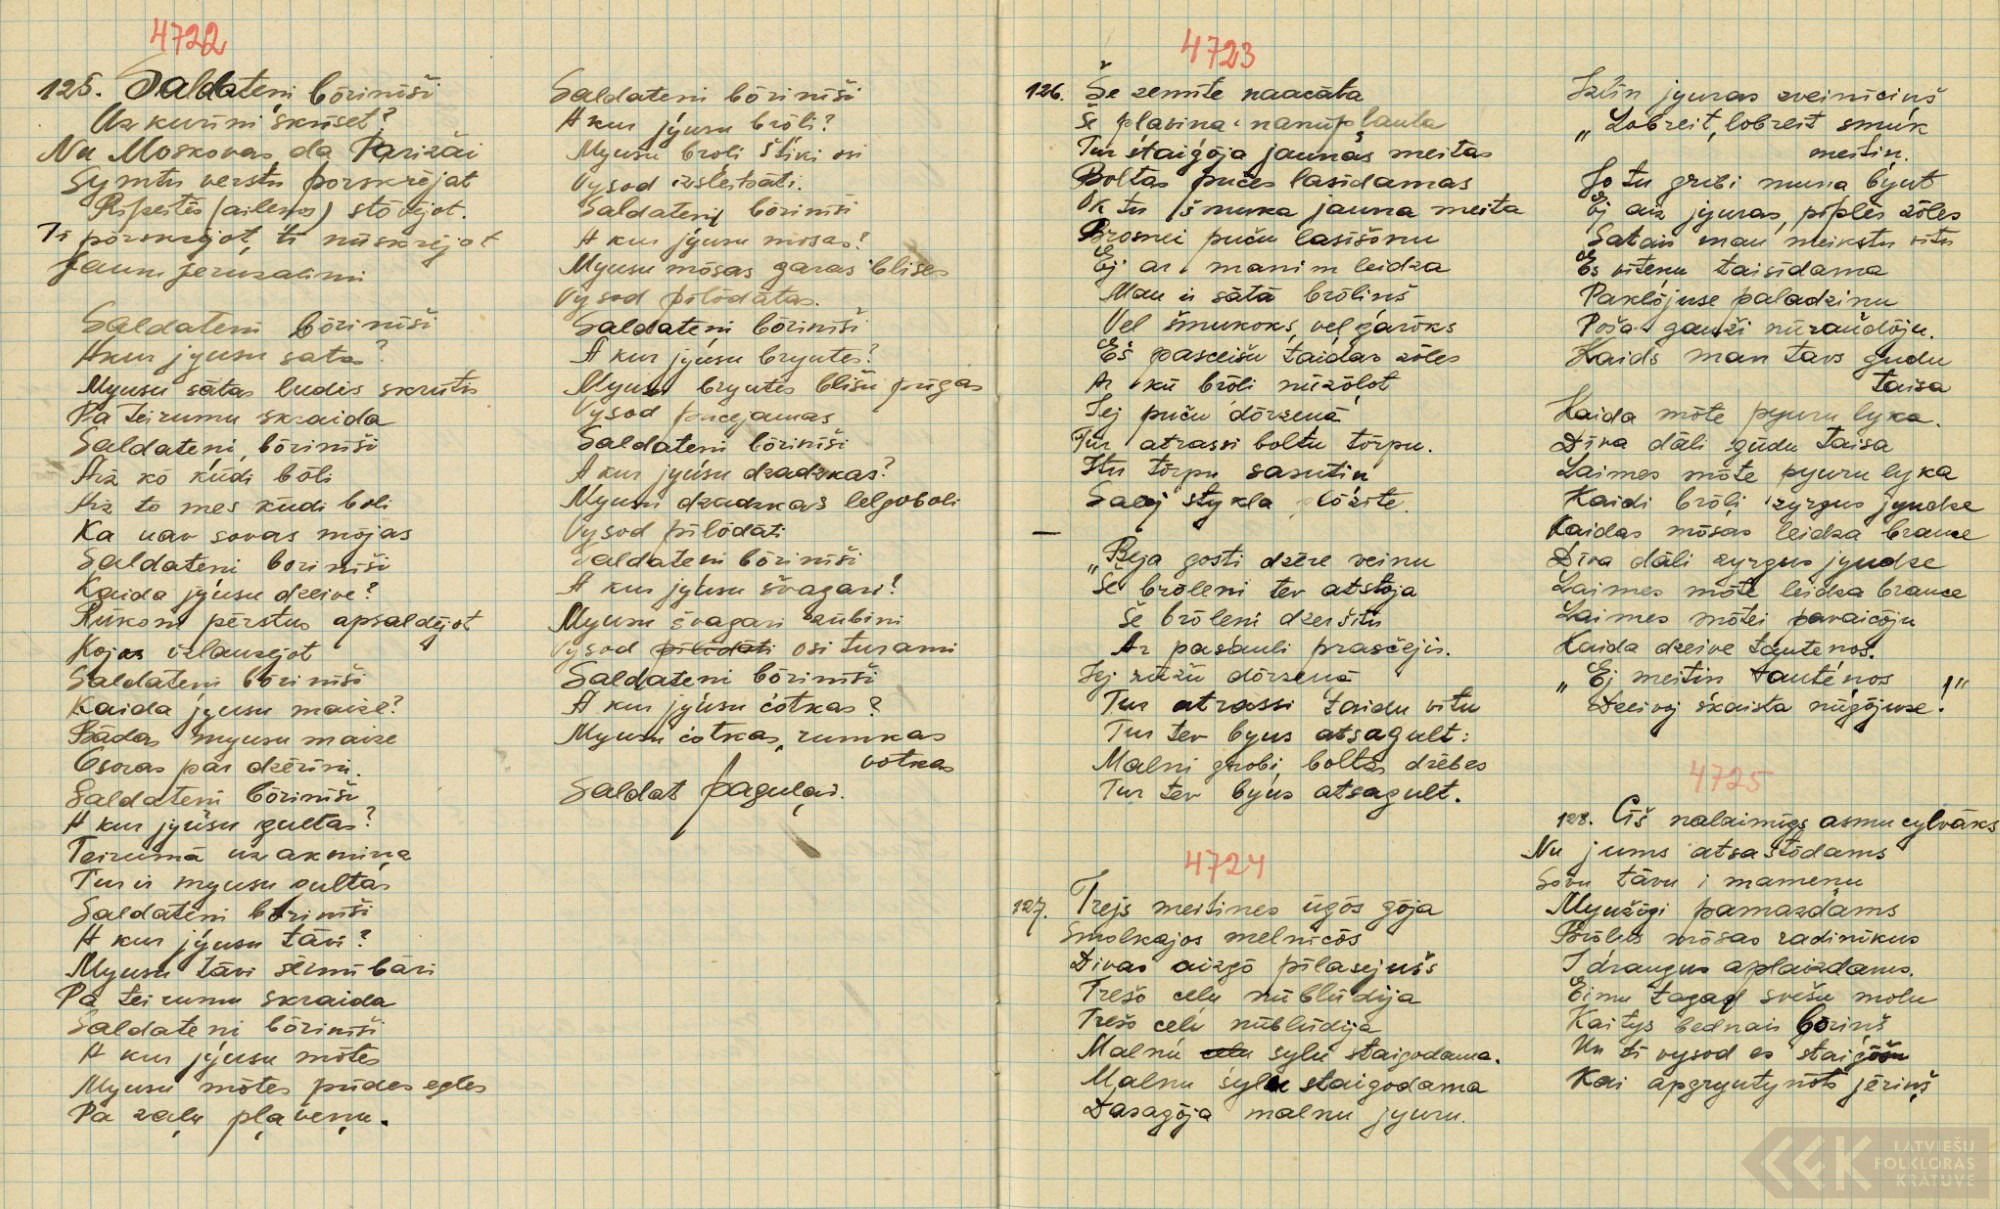 4722
125. Saldateņi bōriniši
Uz kurini skriset?
Nu Moskovas da Parizāi
Symtu verstu pōrskrējat
Pipeitēs (ailenos) stōvējot.
Ti pōrskrējot, ti nūskrējot
Jaunu jeruzalimi
Saldateni bōriniši
A kur jyusu sata?
Myusu sātas ludis skrutis
Pa teirumu skraida
Saldateņi, bōriniši
Aiz kō kūdi bōli
Aiz to mes kūdi boli
Ka nav sovas mōjas
Saldateni boriniši
Kaida jyusu dzeive?
Rūkom pērstus apsaldējot
Kojas izlauzejot
Saldateni bōriniši
Kaida jyusu maize?
Bādas myusu maize
Osoras par dzērini.
Saldateni bōriniši
A kur jyušu gultas?
Teirumā uz akmiņa
Tur ir myusu gultas
Saldateni bōriniši
A kur jyusu tāvi?
Myusu tāvi sērmi bāri
Pa teirumu skraida
Saldateni bōriniši
A kur jyusu mōtes
Myusu mōtes prīdes egles
Pa zaļu pļaveņu.
Saldateni bōriniši
A kur jyusu brōli?
Myusu broli štiki osi
Vysod izslestāti.
Saldateni bōriniši
A kur jyusu mosas?
Myusu mōsas garas blises
Vysod pīlōdātas.
Saldateņi bōriniši
A kur jyusu bryutes?
Myusu bryutes blišu pūgas
Vysod pucejamas
Saldateni bōriniši
A kur jyusu dzadzkas?
Myusu dzadzkas lelgoboli
Vysod pīlōdāti
Saldateni bōriniši
A kur jyusu švagari?
Myusu švagari zūbini
Vysod pīlōdāti osi turami
Saldateni bōriniši
A kur jyusu ćotkas?
Myusu ćotkas, rumkas
votkas
Saldat paguļai.
4723
126. Še zemīte naacāta
Še plavina nanūplauta
Tur staigōja jaunas meitas
Boltas pučes lasīdamas
Ok tu šmuka jauna meita
Brosnei puču lasīšonu
Ej ar manim leidza
Man ir sātā brōliņš
Vel šmukoks, vel garōks
Es pasceišu taidas zōles
Ar kū brōli nūzōļot
Jej puču dōrzenā
Tur atrassi boltu tōrpu.
Itu tōrpu sasutin
Salej stykla plōzite.
—
„Beja gosti dzēre veinu
Še brōleni tev atstōja
Še brōleni dzeršitu
Ar pasauli prasčejis.
Jej rūžu dōrzenā
Tur atrassi taidu vitu
Tur tev byus atsagult:
Malni grobi, boltas drēbes
Tur tev byus atsagult.
4724
127. Trejs meitines ūgōs gōja
Smolkajos melnicōs
Divas aizgō pīlasejušs
Trešo celu nūblūdija
Trešo celu nūblūdija
Malnu celu sylu staigodama.
Malnu sylu staigodama
Dasagōja malnu jyuru.
Izīn jyuras zveiniciņš
„Lobreit, lobreit smuk
meitiņ.
Jo tu gribi muna byut
Ej aiz jyuras, piplēs zōles
Satais man meikstu vitu
Es vitenu taisidama
Paklōjuse paladzinu
Poša gauži nūraudōju.
Kaids man tavs gudu
taisa
Kaida mōte pyuru lyka.
Diva dāli gūdu taisa
Laimes mōte pyuru lyka
Kaidi brōļi zyrgus jyudze
Kaidas mōsas leidza brauce
Diva dāli zyrgus jyudze
Laimes mōte leidza brauce
Laimes mōtei pavaicōju
Kaida dzeive tautenos.
„Ej meitin tautenos!“
Dzeivoj skaista nūgōjuse!
4725
128. Cīš nalaimīgs asmu cylvāks
Nu jums atsastōdams
Sovu tāvu i mamenu
Myužigi pamazdams
Brōlus mōsas radinikus
I draugus aplaizdams.
Eimu tagad svešu molu
Kaitys bednais bōriņš
Un ti vysod es staigōšu
Kai apgryutynōts jēriņš
LATVIEŠU
FOLKLORAS
KRĀTUVE